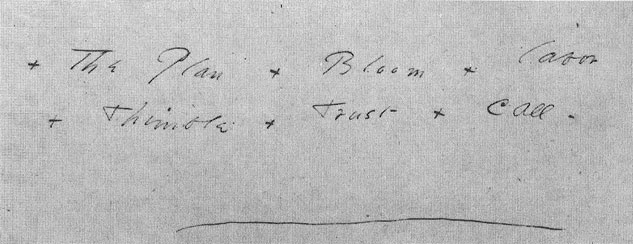 + The Plan + Bloom + labor
+ Thimble + Trust + Call -